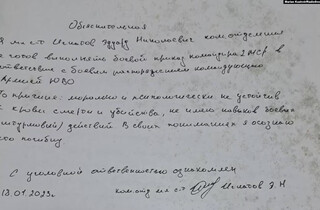 Объяснительная
Я мл с-т Исмагов Эдуард Николаевич ком отделения
не готов выполнять боевой приказ командира 2 МСР в
ответствие с боевым распоряжением командующего
Армией ЮВО
По причине: морально и психологически не устойчив
к крови смерти и убийства, не имею навыков боевых
штурмовых действий. В своих пониманиях я осознаю
свою погибну
С уголовной ответственностью ознакомлен
13.01.2023г. команд мл с-т Исмагов Э.Н